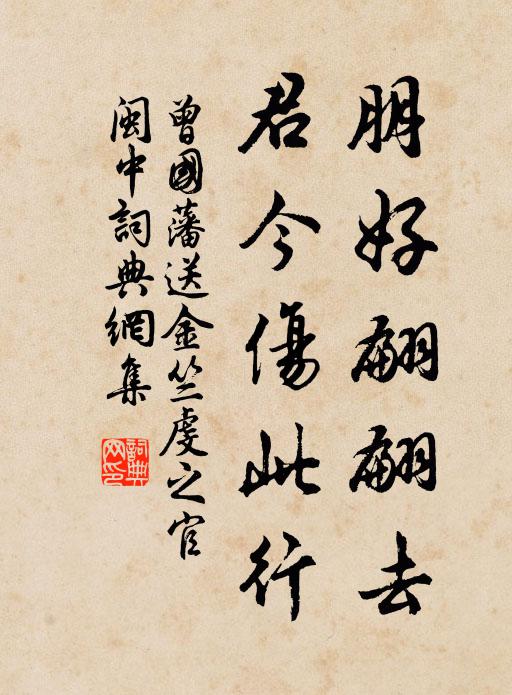 朋好翩翩去
君今傷此行
曾國藩送金竺虔之官
閩中詞典網集
詞典網印